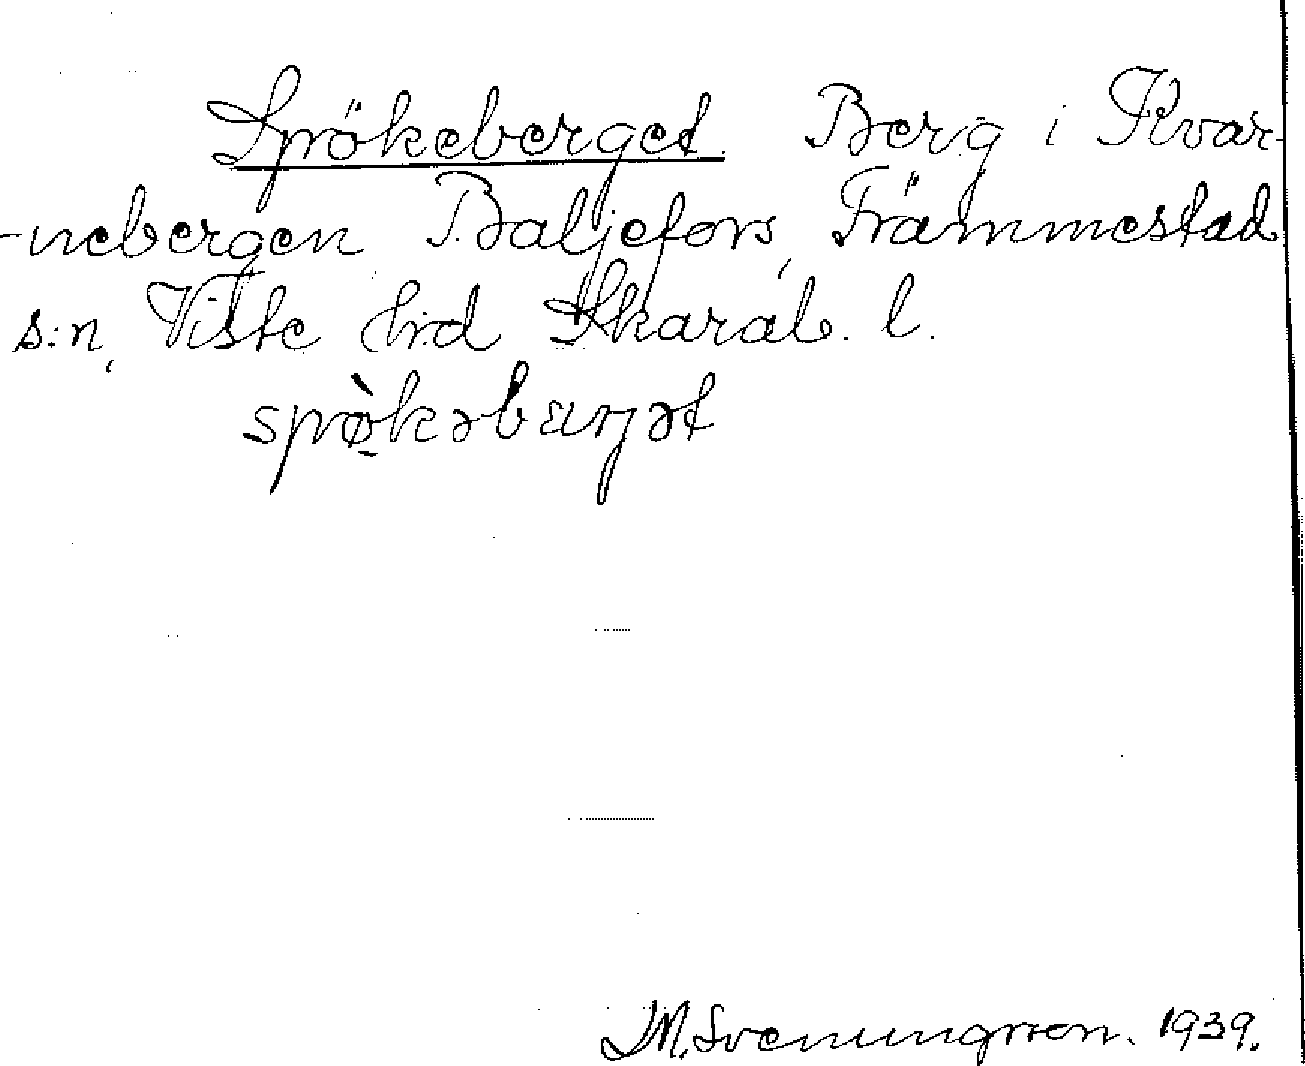 Spökeberget. Berg i Kvar-
-nebergen Baljefors, Främmestad
s:n, Viste hrd Skarab. l.
spø̀kəbærjət
M. Svenungsson. 1939.